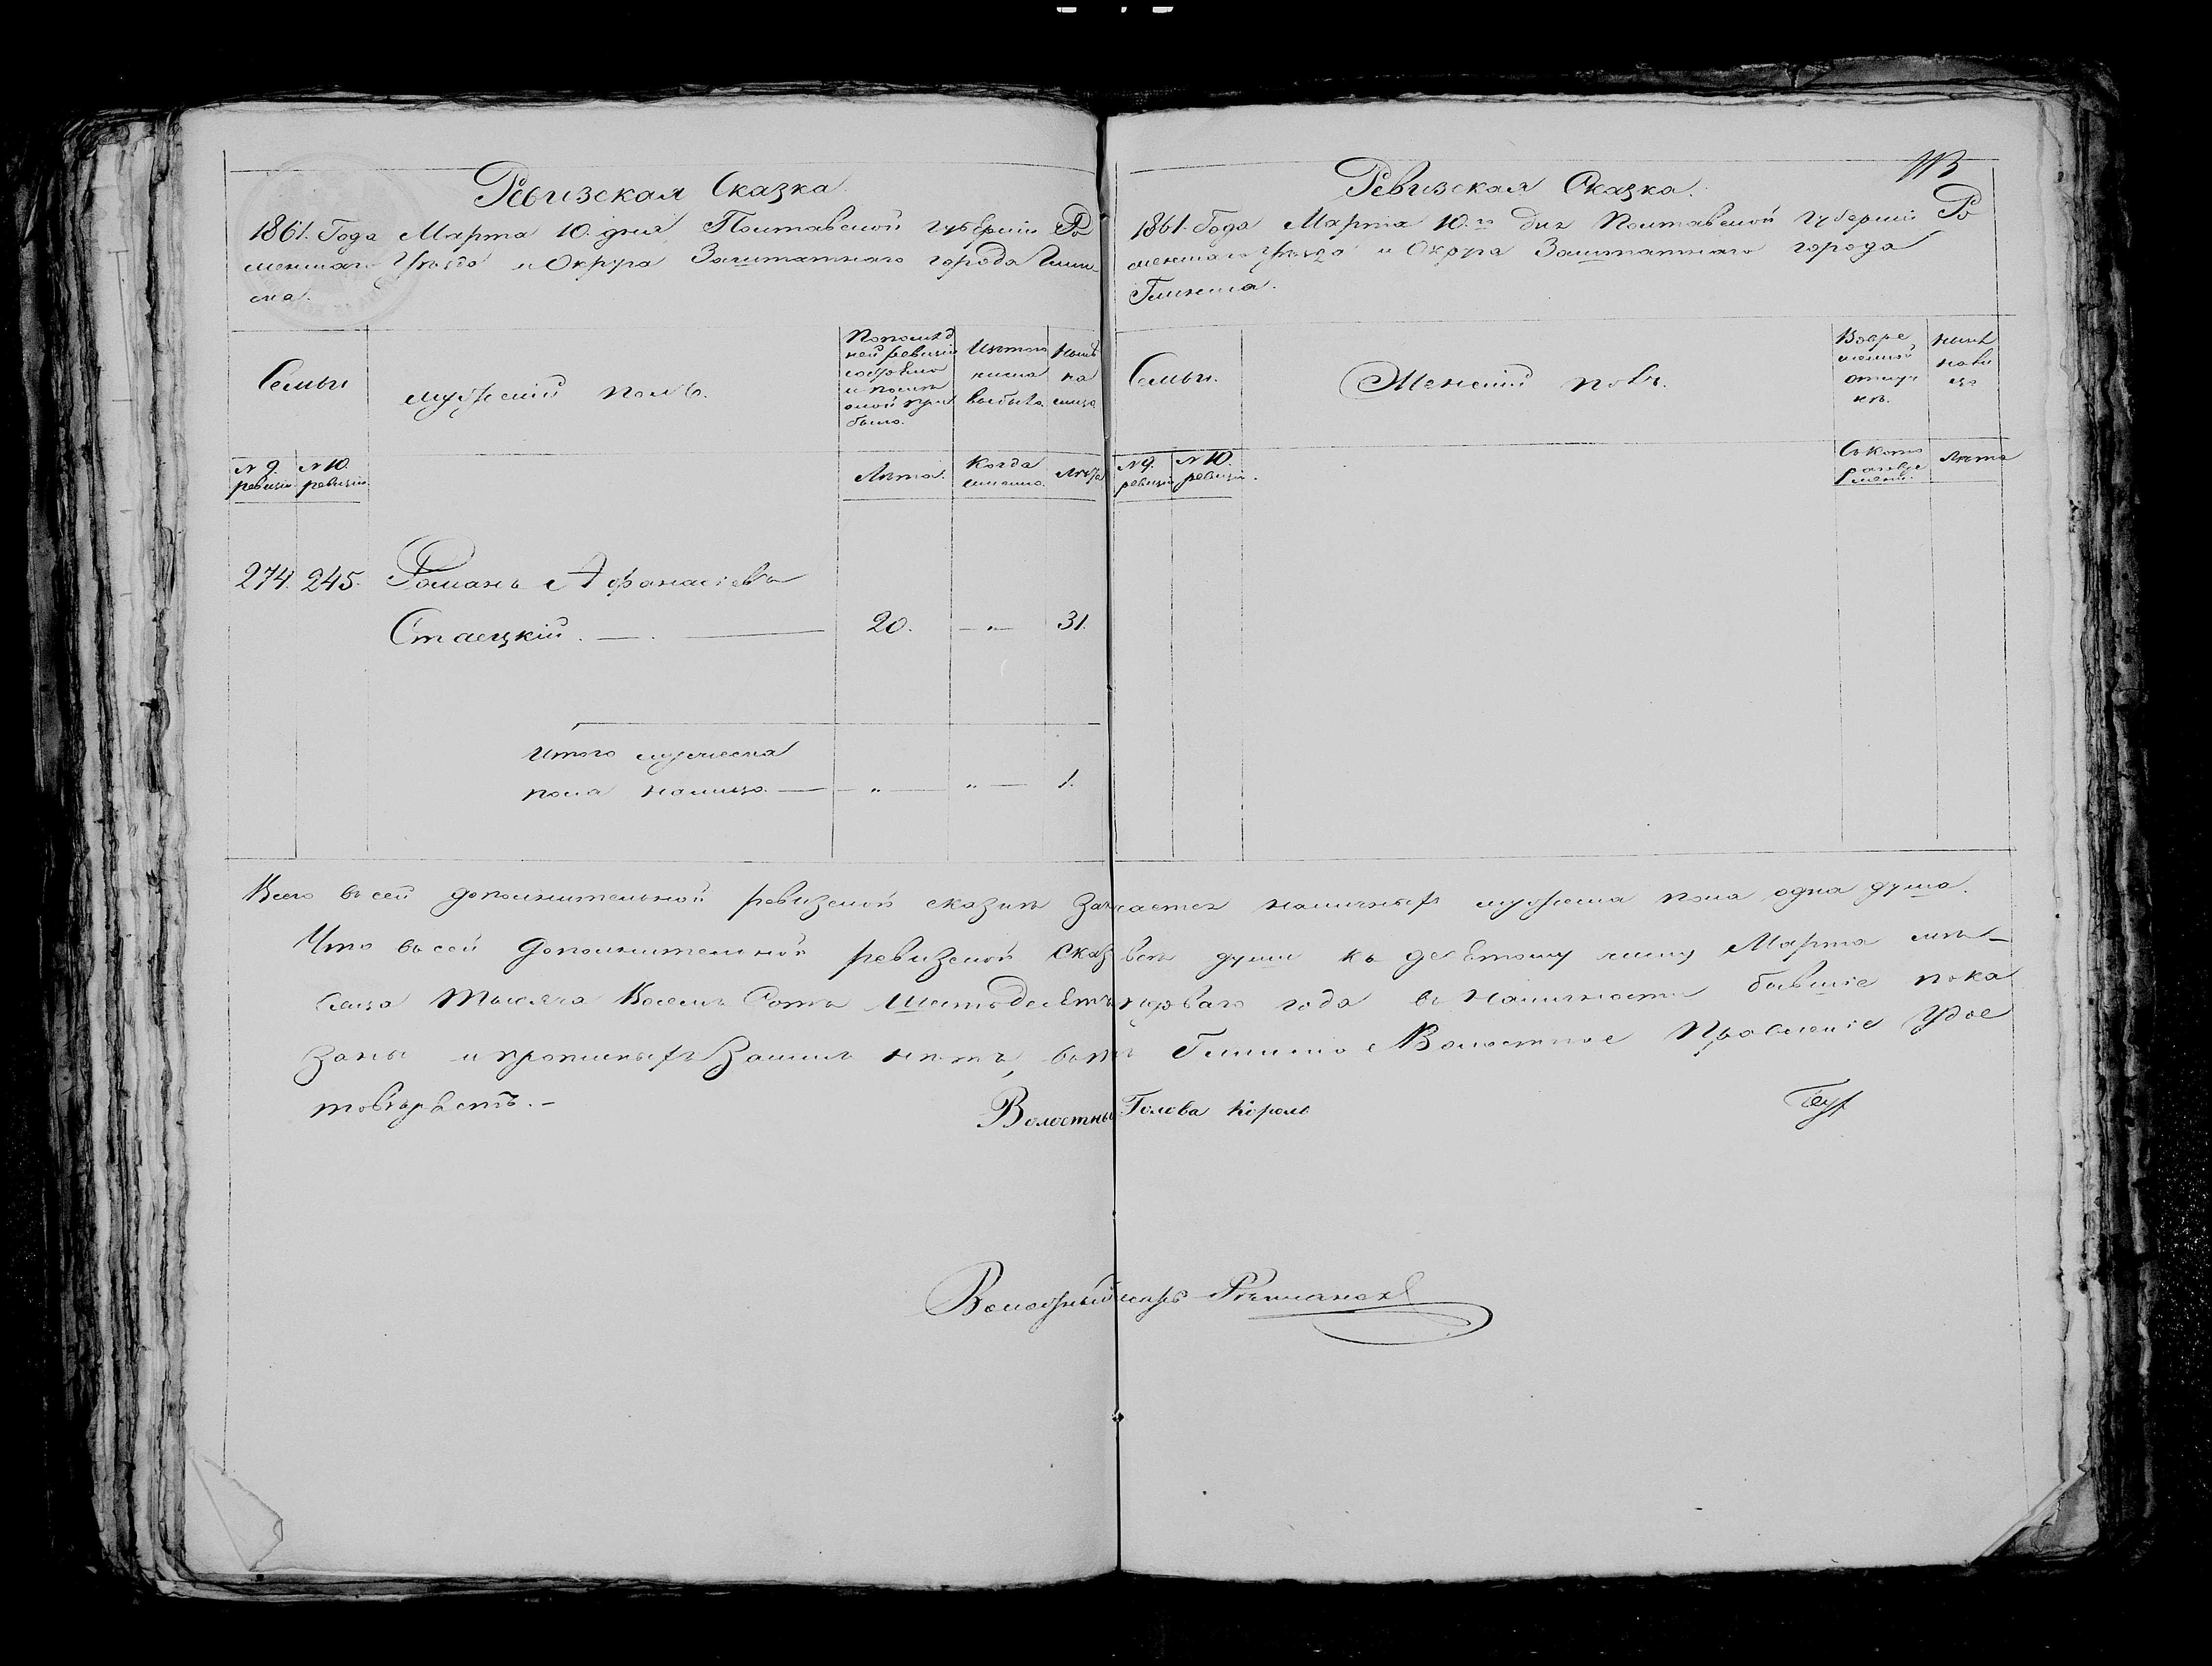 Ревизская Сказка.
1861. Года Марта 10. дня Полтавской губерніи Ро
менскаго Уѣзда и Округа Заштатнаго города Глин-
ска.
Семьи
мужескій полъ.
По послѣд
ней ревизіи
состояло
и послѣ
оной при
было.
Изъ того
числа
выбыло.
Нынѣ
на
лицо.
№ 9. № 10.
ревизіи ревизіи
Лѣта.
Когда
именно.
Лѣта
274. 245. Романъ Афанасіевъ
Стаецкій. 20. — „ — 31.
Итого мужеска
пола налицо. — „ — „ — 1.
Ревизская Сказка.
1861. Года Марта 10.го дня Полтавской губерніи Ро
менскаго Уѣзда и Округа Заштатнаго города
Глинска.
Семьи.
Женскій полъ.
Во вре
менной
отлуч
кѣ.
Нынѣ
нали
цо
№ 9. № 10.
ревизіи ревизіи.
Съ кото
раго вре
мени.
Лѣта
Всего въ сей дополнительной ревизской сказкѣ значается наличныхъ мужеска пола одна душа.
Что въ сей дополнительной ревизской сказкѣ всѣ души къ десятому числу Марта мѣ-
сяца Тысяча Восемь Сотъ Шестьдесятъ перваго года въ наличности бывшіе пока
заны и прописныхъ за нимъ нѣтъ, въ томъ Глинско Волостное Правленіе Удос
товѣряетъ. -
Волостный Голова Король
Волостный писарь